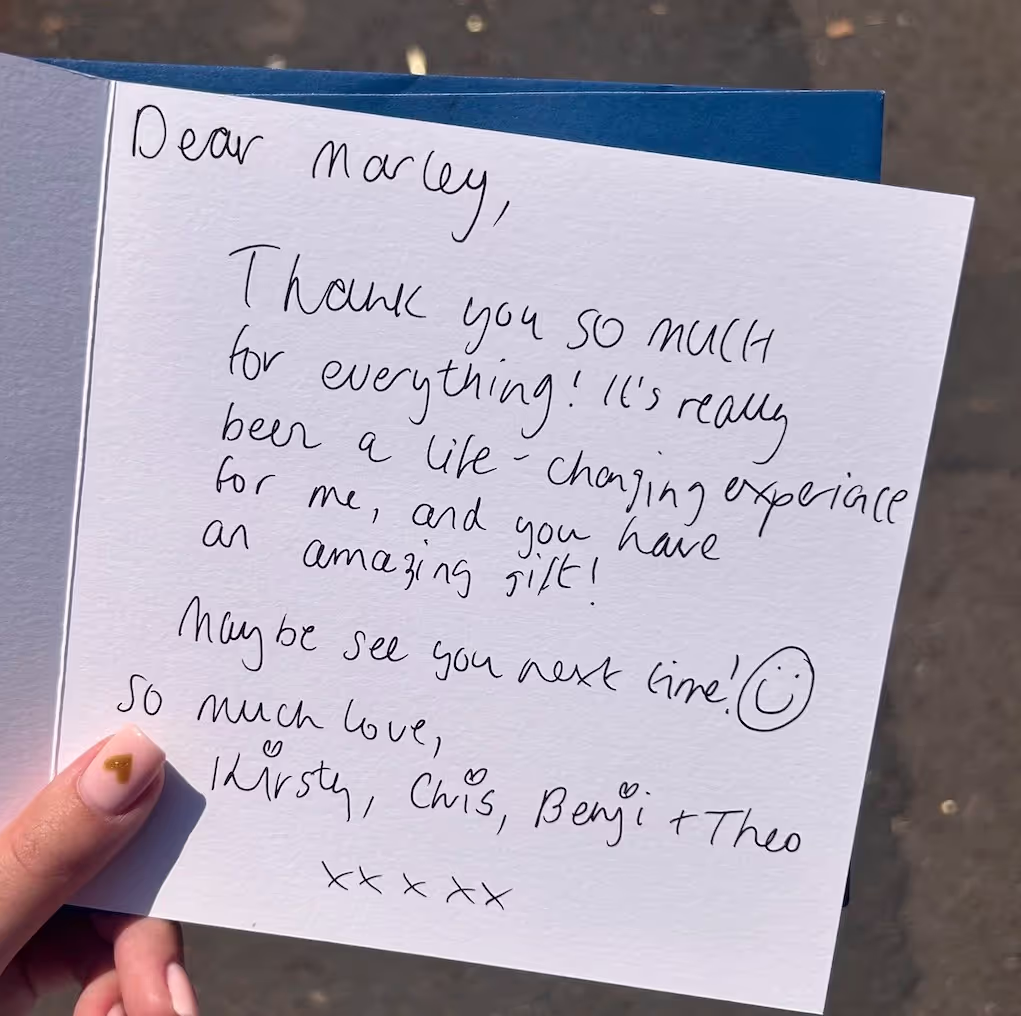 Dear Marley,
Thank you so much
for everything! It's really
been a life-changing experience
for me, and you have
an amazing gift!
Maybe see you next time!
so much love,
Kirsty, Chris, Benji + Theo
xxxxx